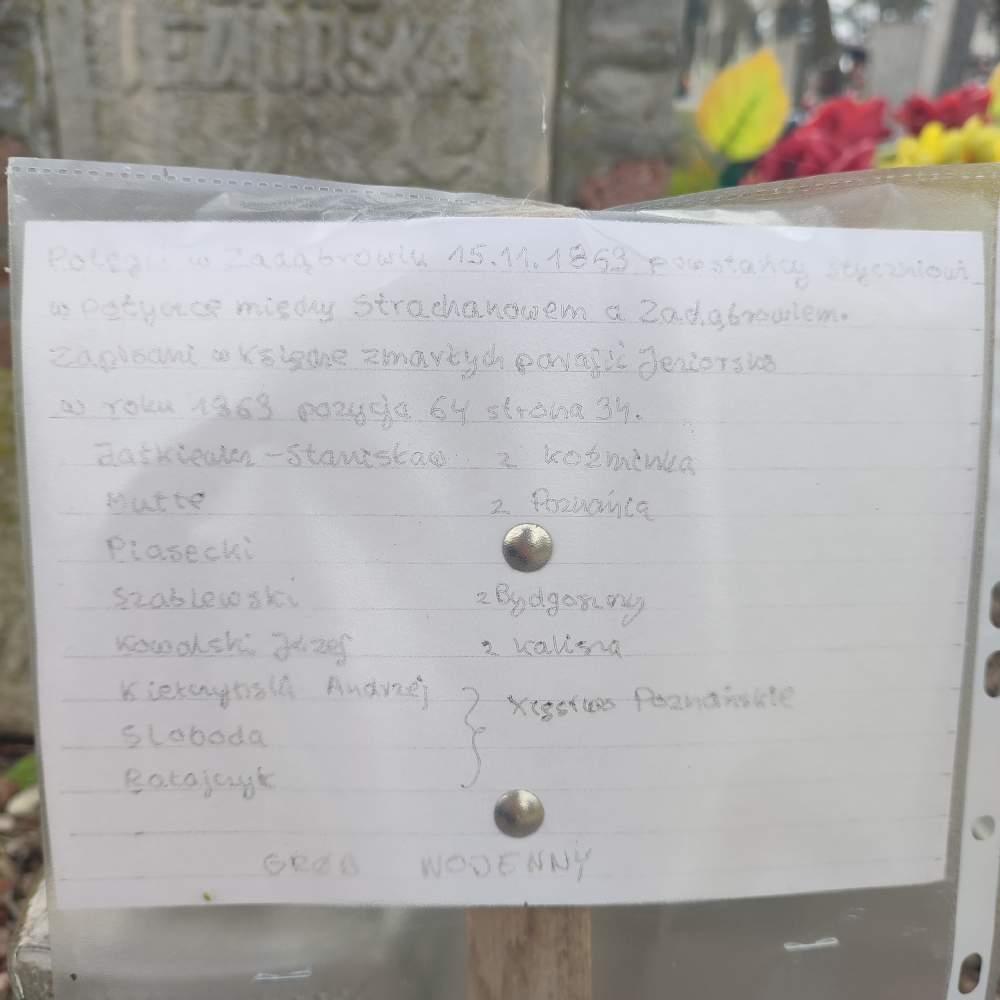 JEZIORSKA
Polegli w Zadąbrowiu 15.11.1863 powstańcy styczniowi
w potyczce między Strachanowem a Zadąbrowiem.
Zapisani w Księdze zmarłych parafii Jeziorsko
w roku 1863 pozycja 64 strona 34.
Stanisław z Koźminka
Mutte z Poznania
Piasecki
Szablewski z Bydgoszczy
Kowalski Józef z Kalisza
Kiełczyński Andrzej } Xięstwo Poznańskie
Sloboda
Ratajczyk
GRÓB WOJENNY